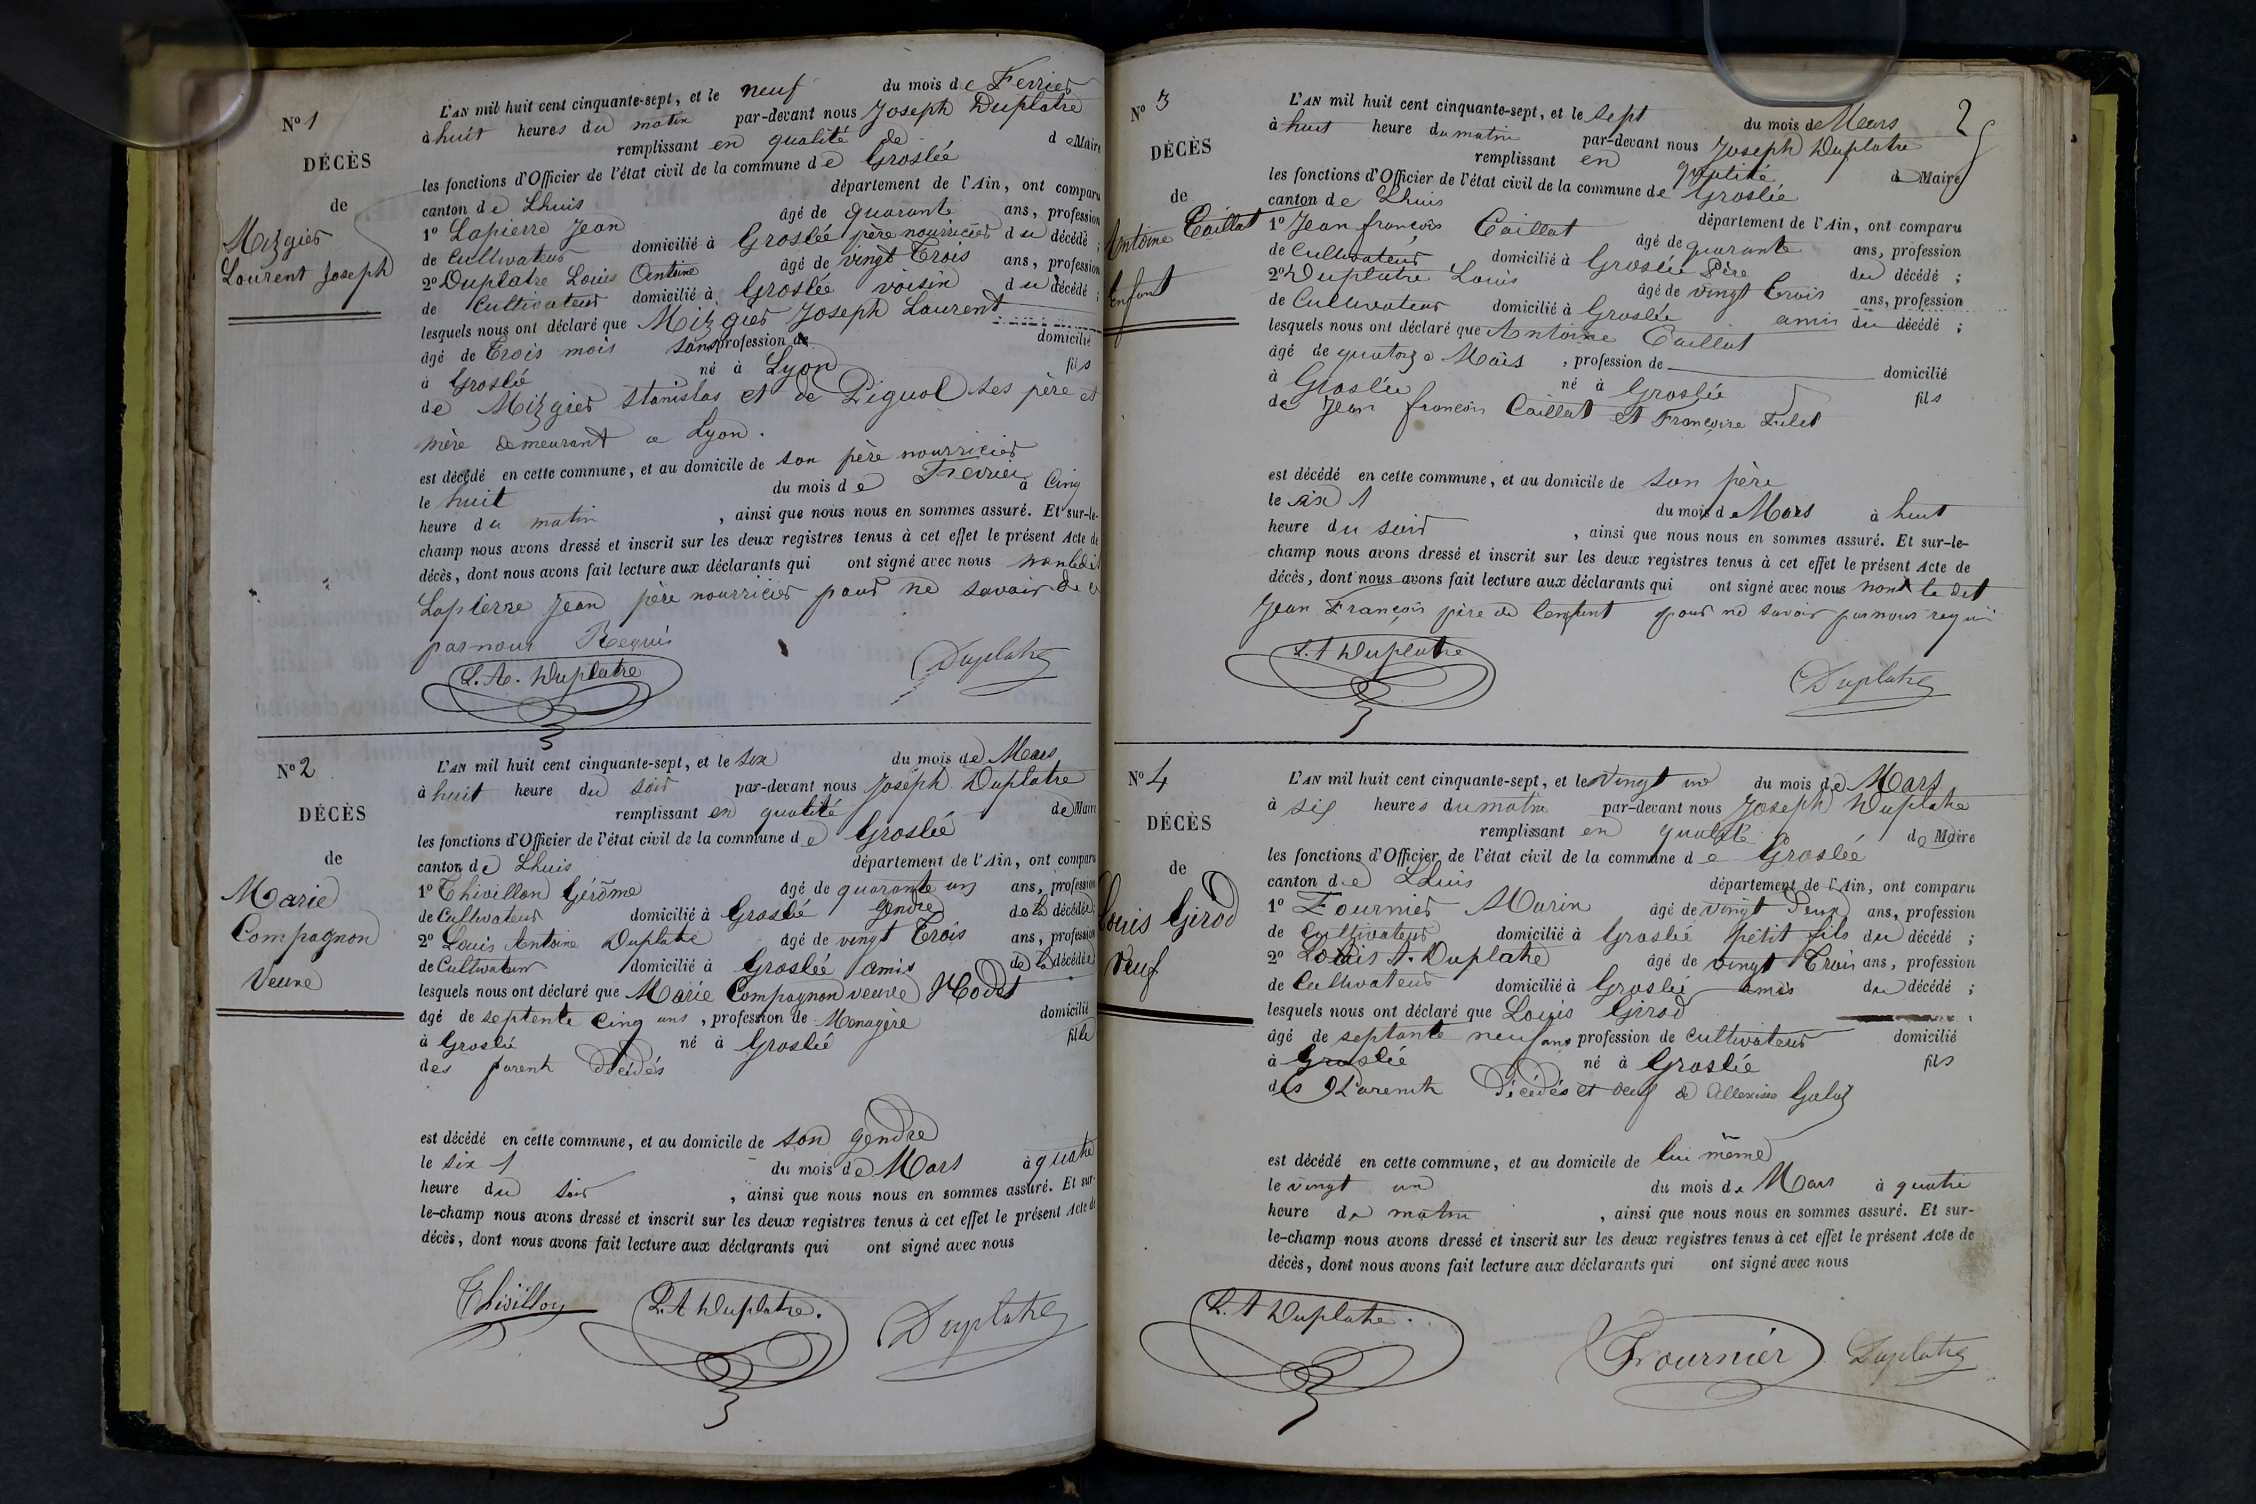 N° 1
DÉCÈS
de
Mizgier
Laurent Joseph
L'AN mil huit cent cinquante-sept, et le neuf du mois de Fevrier
à huit heures du matin par-devant nous Joseph Duplatre
remplissant en qualité de de Maire
les fonctions d'Officier de l'état civil de la commune de Groslée
canton de Lhuis département de l'Ain, ont comparu
1° Lapierre Jean âgé de quarante ans, profession
de Cultivateur domicilié à Groslée père nourricier du décédé ;
2° Duplatre Louis Antoine âgé de vingt Trois ans, profession
de Cultivateur domicilié à Groslée voisin du décédé ;
lesquels nous ont déclaré que Mizgier Joseph Laurent
âgé de Trois mois sans profession de domicilié
à Groslée né à Lyon fils
de Mizgier Stanislas et de Piguol ses père et
mère demeurant a Lyon.
est décédé en cette commune, et au domicile de son père nourricier
le huit du mois de Fevrier à Cinq
heure du matin , ainsi que nous nous en sommes assuré. Et sur-le-
champ nous avons dressé et inscrit sur les deux registres tenus à cet effet le présent Acte de
décès, dont nous avons fait lecture aux déclarants qui ont signé avec nous non ledit
Lapierre Jean père nourricier pour ne savoir de ce
par nous Requis
L. A. Duplatre
Duplatre
N° 2
DÉCÈS
de
Marie
Compagnon
Veuve
L'AN mil huit cent cinquante-sept, et le six du mois de Mars
à huit heure du soir par-devant nous Joseph Duplatre
remplissant en qualité de Maire
les fonctions d'Officier de l'état civil de la commune de Groslée
canton de Lhuis département de l'Ain, ont comparu
1° Thivillon Gérôme âgé de quarante un ans, profession
de Cultivateur domicilié à Groslée gendre de la décédée ;
2° Louis Antoine Duplatre âgé de vingt Trois ans, profession
de Cultivateur domicilié à Groslée amis de la décédée
lesquels nous ont déclaré que Marie Compagnon veuve
âgé de septente Cinq ans, profession de Menagère domicilié
à Groslée né à Groslée fille
des parent décédés
est décédé en cette commune, et au domicile de son gendre
le six du mois de Mars à quatre
heure du soir , ainsi que nous nous en sommes assuré. Et sur-
le-champ nous avons dressé et inscrit sur les deux registres tenus à cet effet le présent Acte de
décès, dont nous avons fait lecture aux déclarants qui ont signé avec nous
Thivillon
L. A Duplatre.
Duplatre
2
N° 3
DÉCÈS
de
Antoine Caillat
Enfant
L'AN mil huit cent cinquante-sept, et le sept du mois de Mars
à huit heure du matin par-devant nous Joseph Duplatre
remplissant en qualité de Maire
les fonctions d'Officier de l'état civil de la commune de Groslée
canton de Lhuis département de l'Ain, ont comparu
1° Jean françois Caillat âgé de quarante ans, profession
de Cultivateur domicilié à Groslée Père du décédé ;
2° Duplatre Louis âgé de vingt Trois ans, profession
de Cultivateur domicilié à Groslée amis du décédé ;
lesquels nous ont déclaré que Antoine Caillat
âgé de quatorze Mois , profession de domicilié
à Groslée né à Groslée fils
de Jean françois Caillat et Françoise
est décédé en cette commune, et au domicile de son père
le six du mois de Mars à huit
heure du soir , ainsi que nous nous en sommes assuré. Et sur-le-
champ nous avons dressé et inscrit sur les deux registres tenus à cet effet le présent Acte de
décès, dont nous avons fait lecture aux déclarants qui ont signé avec nous non le dit
Jean François père de lenfant pour ne savoir par nous requis
L. A Duplatre
Duplatre
N° 4
DÉCÈS
de
Louis Girod
Veuf
L'AN mil huit cent cinquante-sept, et le Vingt un du mois de Mars
à six heures du matin par-devant nous Joseph Duplatre
remplissant en qualité de Maire
les fonctions d'Officier de l'état civil de la commune de Groslée
canton de Lhuis département de l'Ain, ont comparu
1° Fournier Marin âgé de vingt Deux ans, profession
de Cultivateur domicilié à Groslée petit fils du décédé ;
2° Louis A. Duplatre âgé de vingt Trois ans, profession
de Cultivateur domicilié à Groslée amis du décédé ;
lesquels nous ont déclaré que Louis Girod
âgé de septante neuf ans profession de cultivateur domicilié
à Groslée né à Groslée fils
des Parents Décédés et veuf de
est décédé en cette commune, et au domicile de lui même
le vingt un du mois de Mars à quatre
heure du matin , ainsi que nous nous en sommes assuré. Et sur-
le-champ nous avons dressé et inscrit sur les deux registres tenus à cet effet le présent Acte de
décès, dont nous avons fait lecture aux déclarants qui ont signé avec nous
L. A Duplatre.
Fournier
Duplatre